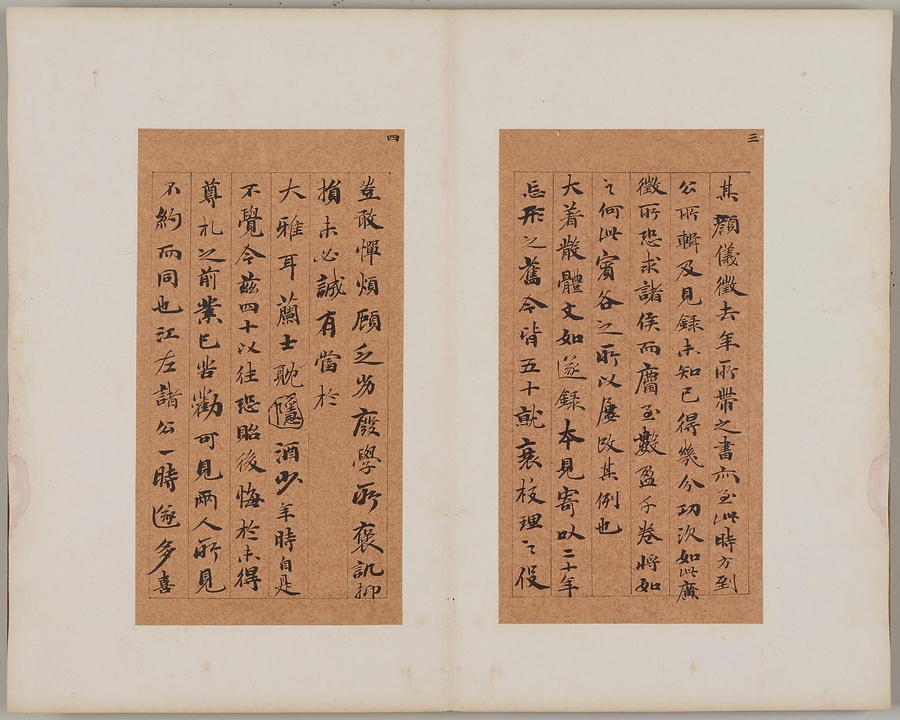 三
其顏儀徵去年所帶之書亦至此時方到
公所輯及見錄未知已得幾分功次如此廣
徵所恐求諸侯而膺至數盈千卷將如
之何此賓谷之所以屢改其例也
大著散體文如遂錄本見寄以二十年
忘形之舊今皆五十就衰校理之役
四
豈敢憚煩顧乏劣廢學所褒訊抑
損未必誠有當於
大雅耳蘭士耽隱酒少年時自是
不覺今茲四十以往恐貽後悔於未得
尊札之前業已苦勸可見兩人所見
不約而同也江左諸公一時遂多喜